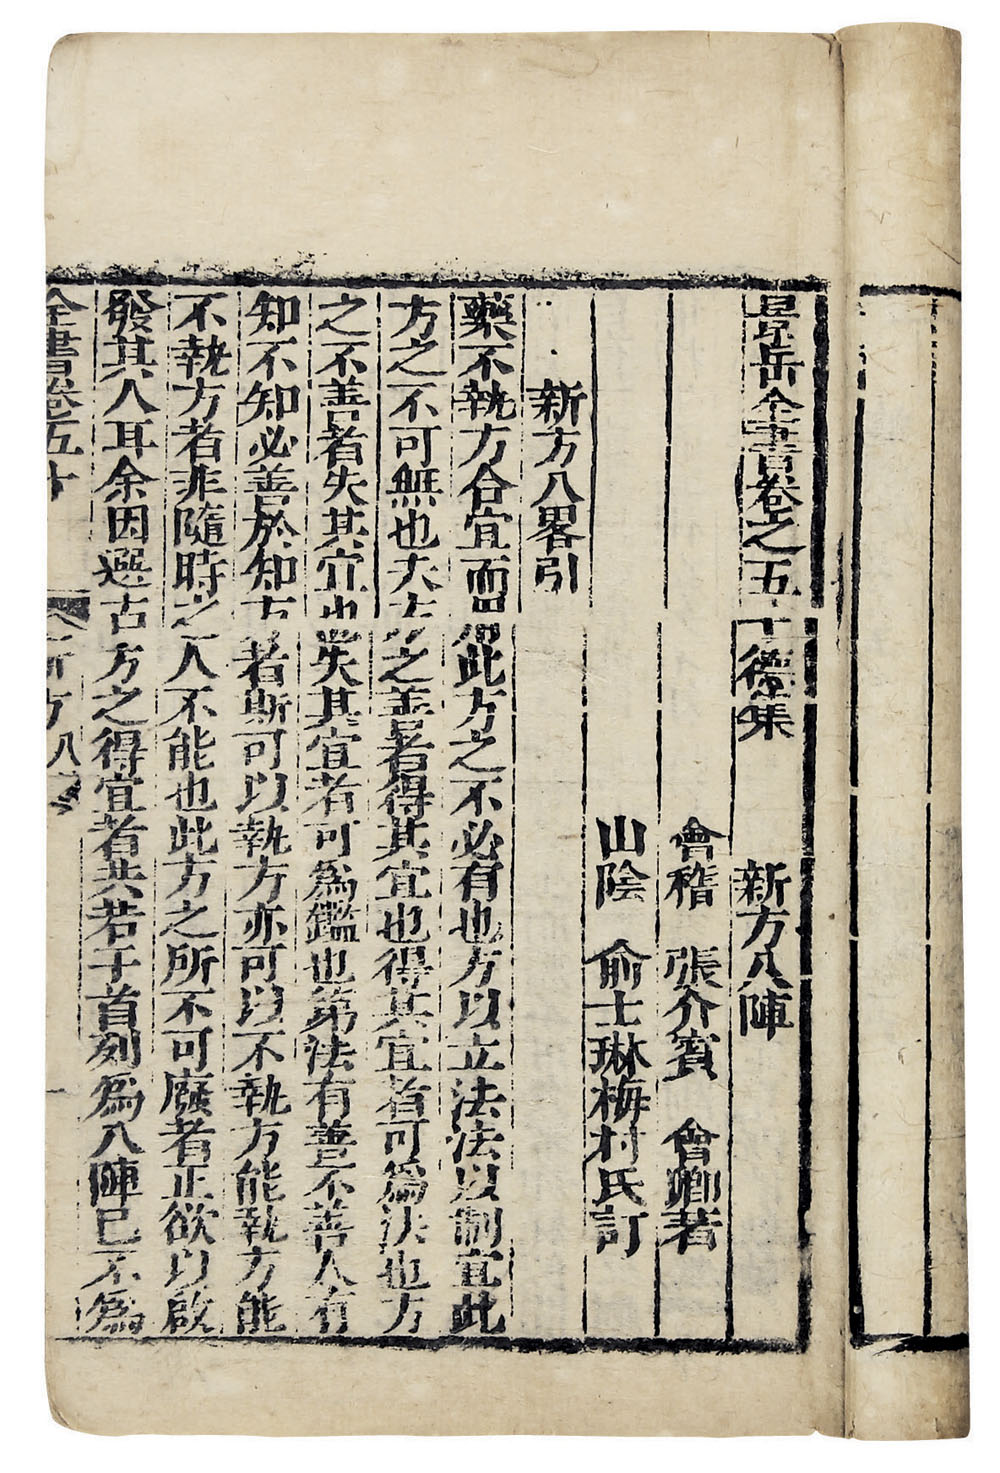 景岳全書卷之五十德集 新方八陣
會稽 張介賓 會卿著
山陰 俞士琳梅村氏訂
新方八畧引
藥不執方合宜而用此方之不必有也方以立法法以制宜此
方之不可無也夫方之善者得其宜也得其宜者可為法也方
之不善者失其宜也失其宜者可為鑑也第法有善不善人有
知不知必善於知方者斯可以執方亦可以不執方能執方能
不執方者非隨時之人不能也此方之所不可廢者正欲以啟
發其人耳余因選古方之得宜者共若干首列為八陣已不為
全書卷五十 新方八